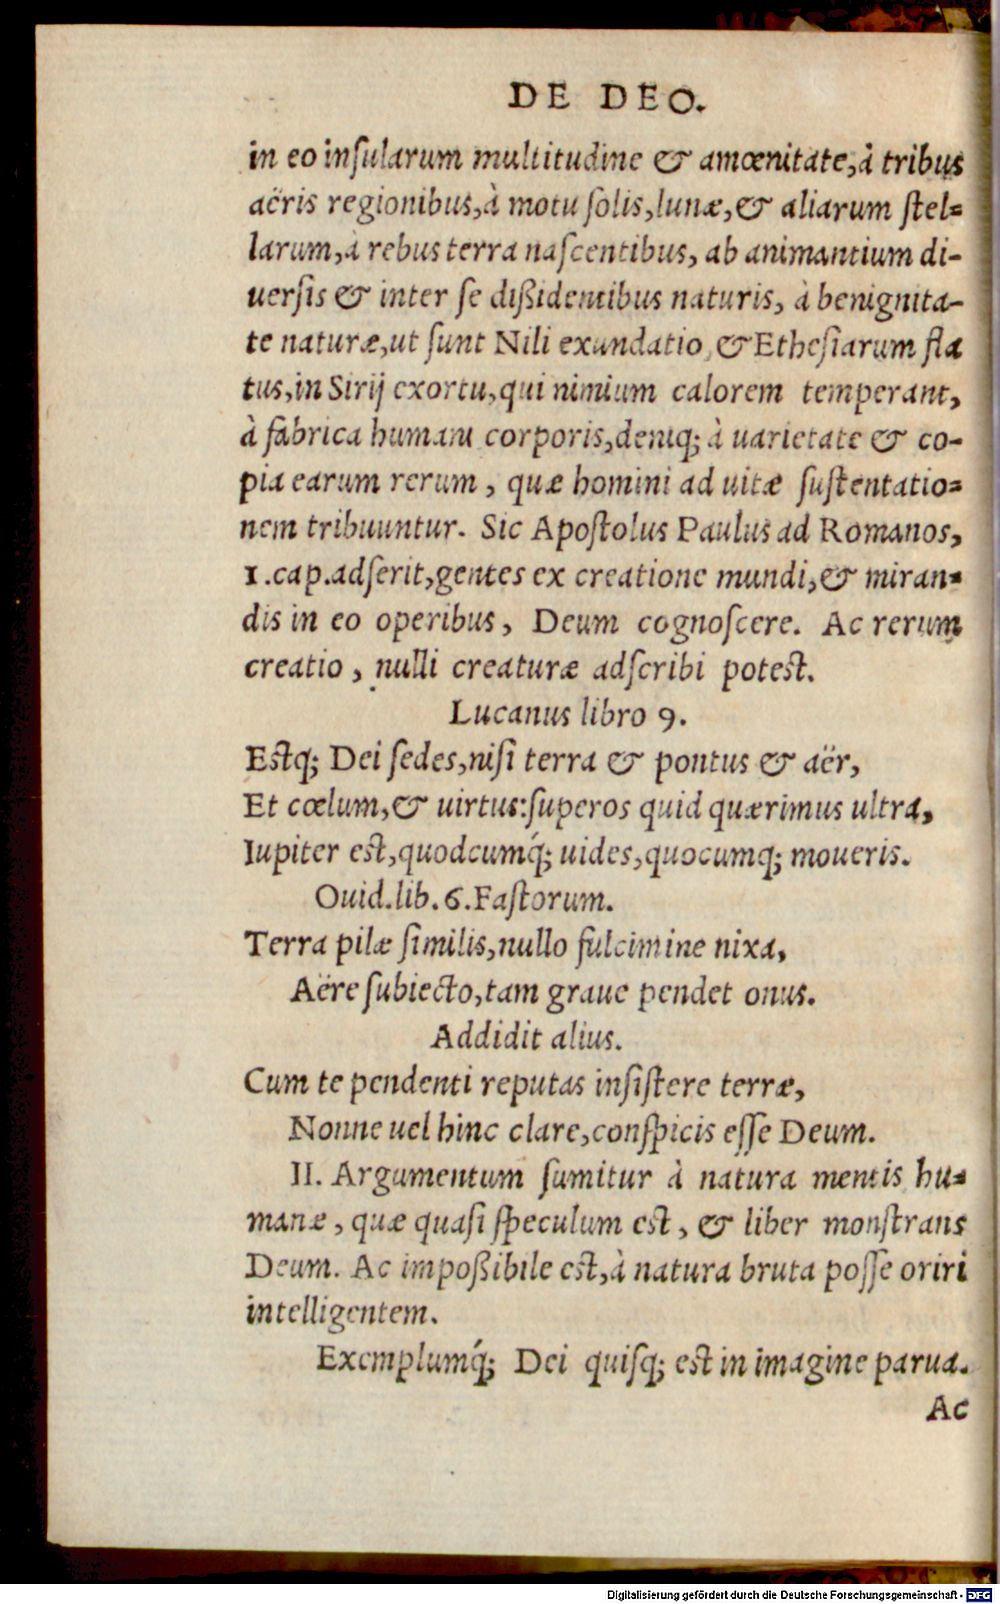 DE DEO.
in eo inſularum multitudine & amœnitate,à tribus
aëris regionibus,à motu ſolis,lunæ,& aliarum ſtel=
larum,à rebus terra naſcentibus, ab animantium di-
uerſis & inter ſe dißidentibus naturis, à benignita-
te naturæ,ut ſunt Nili exundatio,& Etheſiarum fla
tus,in Sirij exortu,qui nimium calorem temperant,
à fabrica humani corporis,deniq; à uarietate & co-
pia earum rerum, quæ homini ad uitæ ſuſtentatio=
nem tribuuntur. Sic Apoſtolus Paulus ad Romanos,
1.cap.adſerit,gentes ex creatione mundi,& miran=
dis in eo operibus, Deum cognoſcere. Ac rerum
creatio, nulli creaturæ adſcribi poteſt.
Lucanus libro 9.
Eſtq; Dei ſedes,niſi terra & pontus & aër,
Et cœlum,& uirtus:ſuperos quid quærimus ultra,
Iupiter eſt,quodcumq́; uides,quocumq; moueris.
Ouid.lib.6.Faſtorum.
Terra pilæ ſimilis,nullo fulcimine nixa,
Aëre ſubiecto,tam graue pendet onus.
Addidit alius.
Cum te pendenti reputas inſiſtere terræ,
Nonne uel hinc clare,conſpicis eſſe Deum.
II. Argumentum ſumitur à natura mentis hu=
manæ, quæ quaſi ſpeculum eſt, & liber monſtrans
Deum. Ac impoßibile eſt,à natura bruta poſſe oriri
intelligentem.
Exemplumq́; Dei quiſq; eſt in imagine parua.
Ac
Digitalisierung gefördert durch die Deutsche Forschungsgemeinschaft - DFG